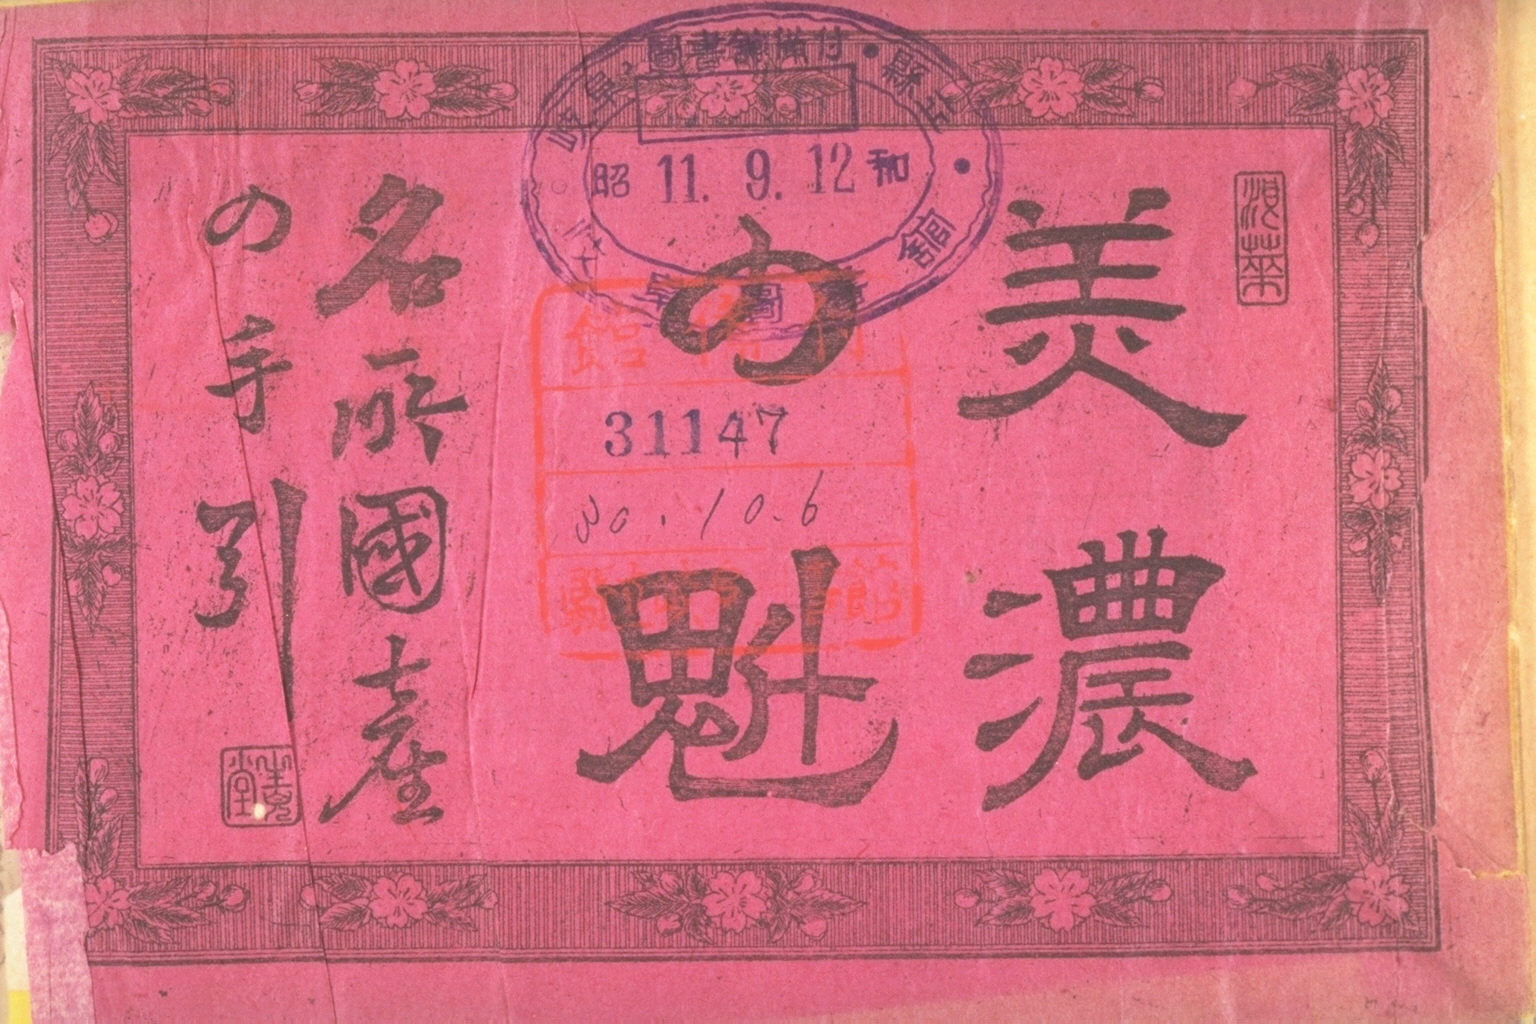 美濃
の魁
名所國產
の手引
圖書館備付
昭 11. 9. 12 和
31147
30.10.6